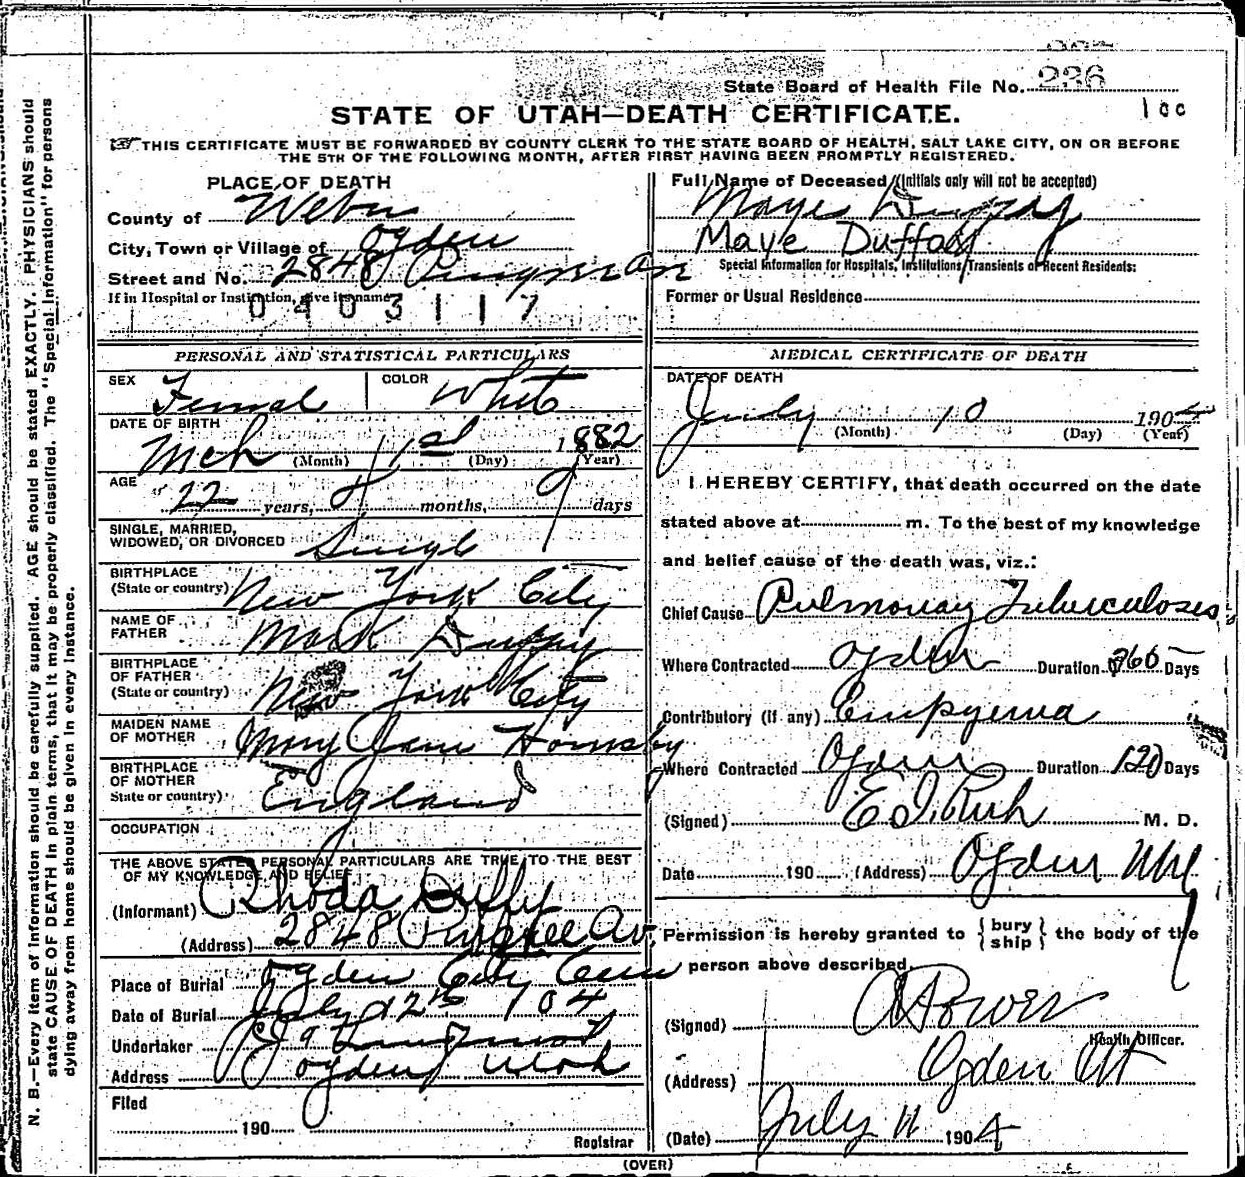 State Board of Health File No. 236
100
STATE OF UTAH—DEATH CERTIFICATE.
THIS CERTIFICATE MUST BE FORWARDED BY COUNTY CLERK TO THE STATE BOARD OF HEALTH, SALT LAKE CITY, ON OR BEFORE
THE 5TH OF THE FOLLOWING MONTH, AFTER FIRST HAVING BEEN PROMPTLY REGISTERED.
PLACE OF DEATH
County of Weber
City, Town or Village of Ogden
Street and No. 2848
If in Hospital or Institution, give its name
0403117
Full Name of Deceased (Initials only will not be accepted)
Maye Duffy
Maye Duffy
Special Information for Hospitals, Institutions, Transients or Recent Residents:
Former or Usual Residence
PERSONAL AND STATISTICAL PARTICULARS
SEX Femal COLOR White
DATE OF BIRTH
Mch (Month) 1st (Day) 1882 (Year)
AGE 22 years, months, 9 days
SINGLE, MARRIED,
WIDOWED, OR DIVORCED Single
BIRTHPLACE
(State or country) New York City
NAME OF
FATHER Mark Duffy
BIRTHPLACE
OF FATHER
(State or country) New York City
MAIDEN NAME
OF MOTHER Mary Jane Hornsby
BIRTHPLACE
OF MOTHER
State or country) England
OCCUPATION
THE ABOVE STATED PERSONAL PARTICULARS ARE TRUE TO THE BEST
OF MY KNOWLEDGE AND BELIEF
(Informant) Rhoda Duffy
(Address) 2848 Pingree Av.
Place of Burial Ogden City Cem
Date of Burial July 12th 104
Undertaker
Address Ogden Utah
Filed
190
Registrar
MEDICAL CERTIFICATE OF DEATH
DATE OF DEATH
July 10 1904
(Month) (Day) (Year)
I HEREBY CERTIFY, that death occurred on the date
stated above at m. To the best of my knowledge
and belief cause of the death was, viz.:
Chief Cause Pulmonay Tuberculoses
Where Contracted Ogden Duration 365 Days
Contributory (if any) Empyema
Where Contracted Ogden Duration 120 Days
(Signed) E I Rich M. D.
Date 190 (Address) Ogden Utah
Permission is hereby granted to {bury ship} the body of the
person above described.
(Signed)
Health Officer.
(Address) Ogden Ut
(Date) July 11 1904
(OVER)
N. B.—Every item of information should be carefully supplied. AGE should be stated EXACTLY. PHYSICIANS should
state CAUSE OF DEATH in plain terms, that it may be properly classified. The "Special Information" for persons
dying away from home should be given in every instance.